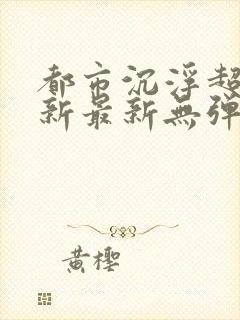 都市沉浮超
新最新無弹
黄樱